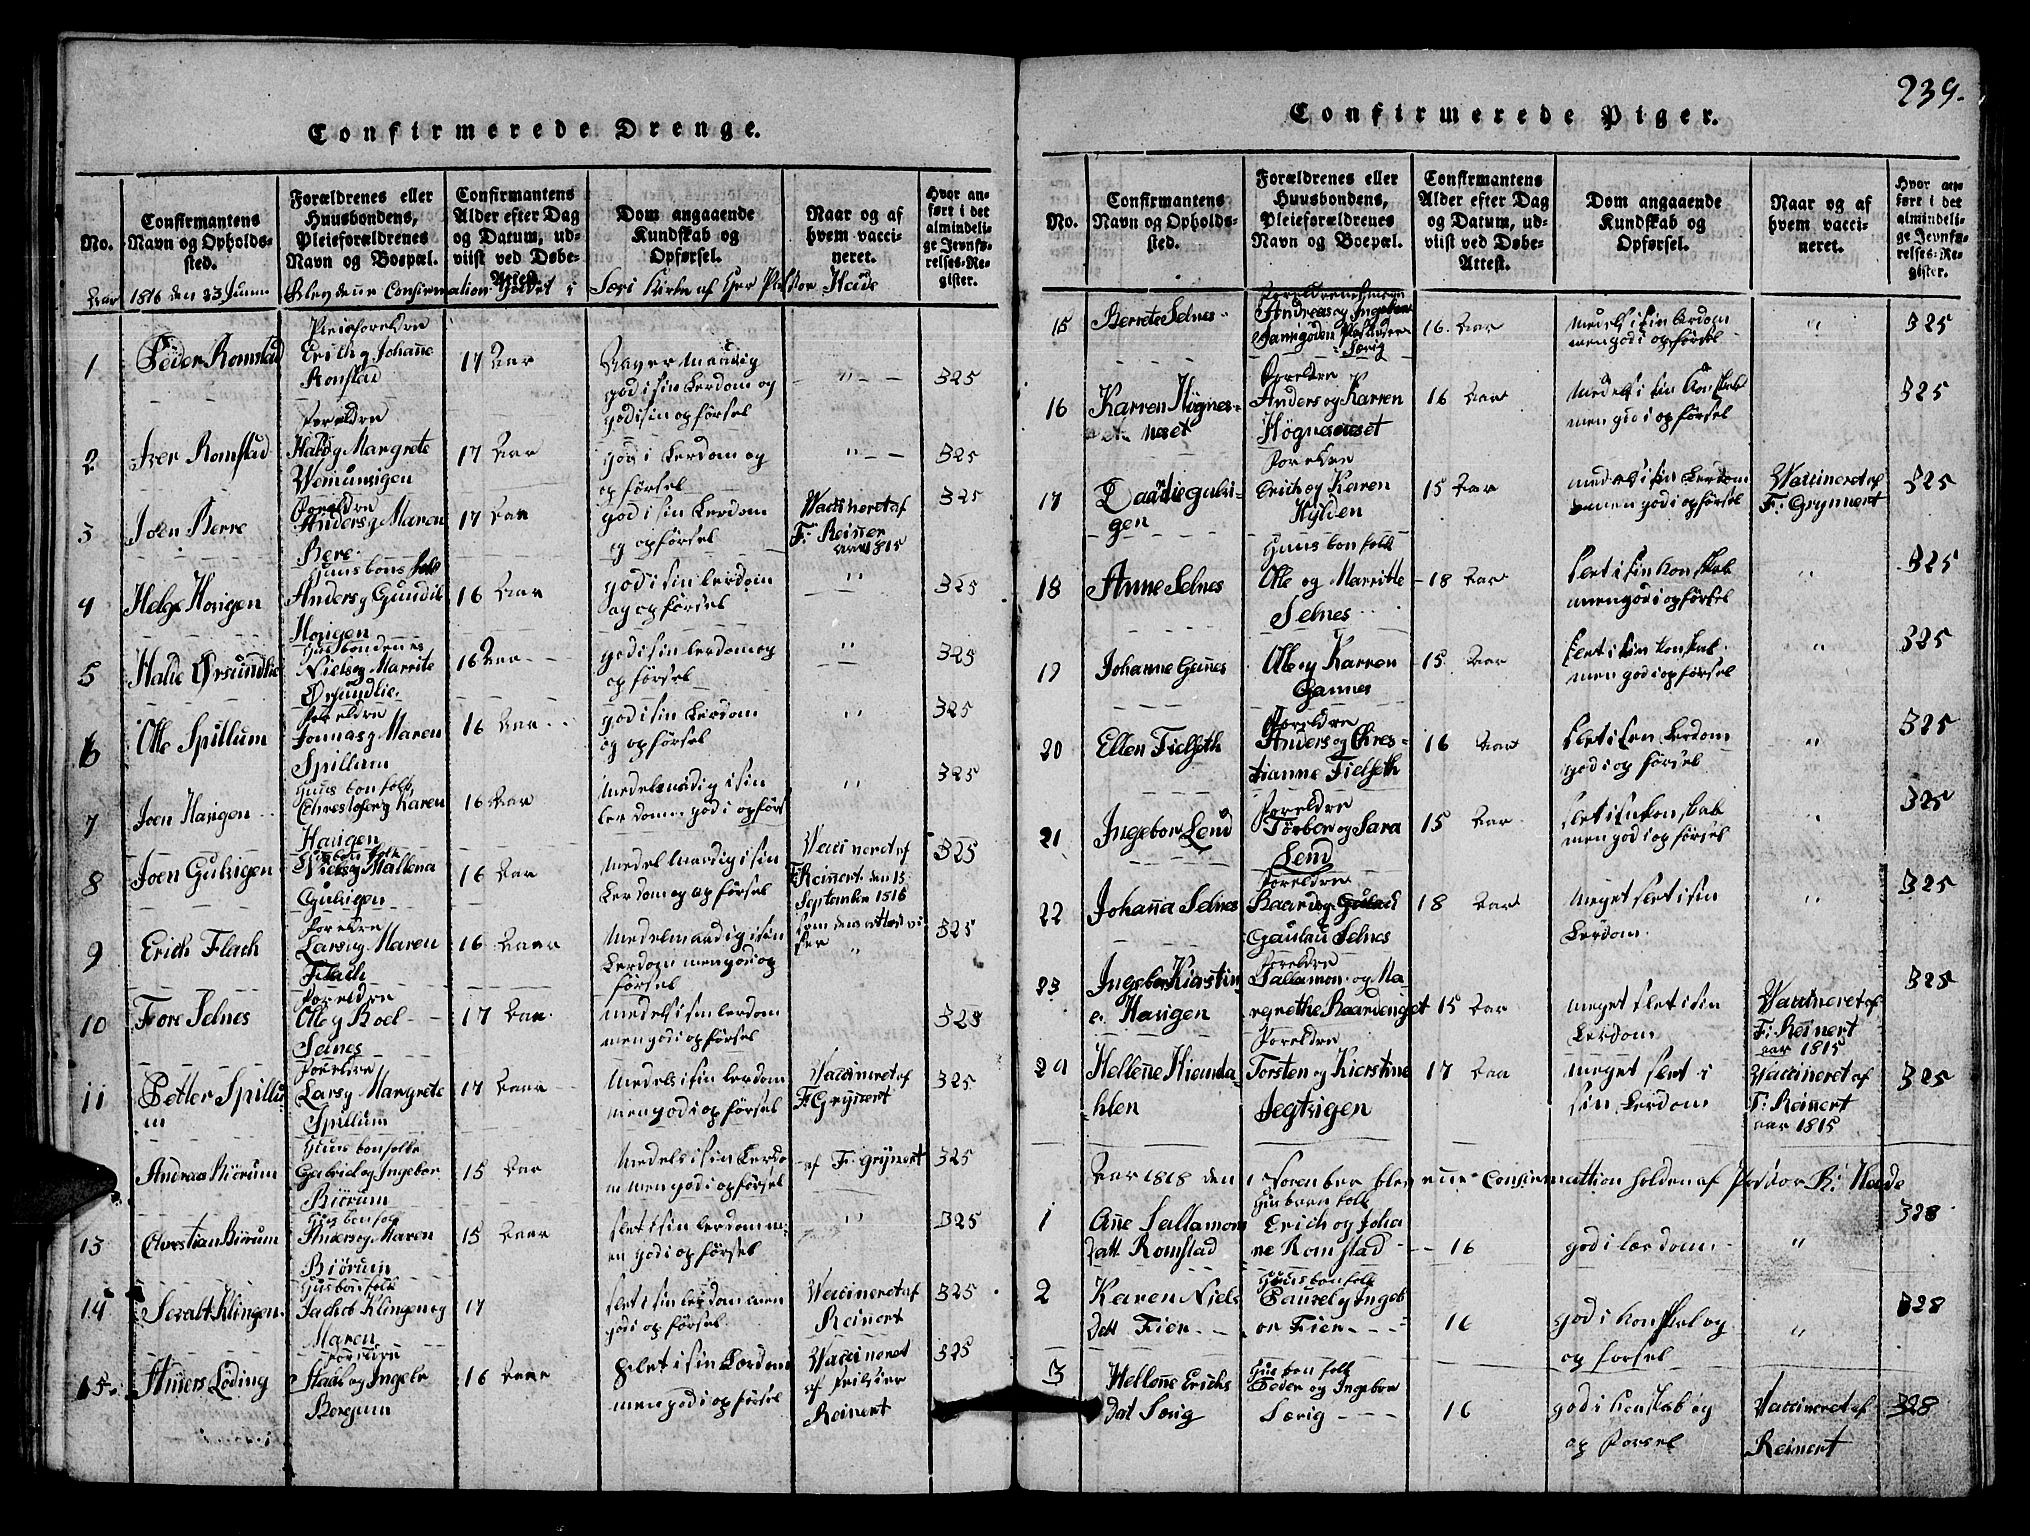 239.
Confirmerede Drenge.
No.
Confirmantens
Navn og Opholds-
sted.
Forældrenes eller
Huusbondens,
Pleieforældrenes
Navn og Boepæl.
Confirmantens
Alder efter Dag
og Datum, ud-
viist ved Døbe-
Attest.
Dom angaaende
Kundskab og
Opførsel.
Naar og af
hvem vacci-
neret.
Hvor an-
ført i det
almindeli-
ge Jevnfø-
relses-Re-
gister.
Aar 1816 den 23 Junni Blev denne Confirmation holdet i Særi Kirke af Her Pastor Hads
1
Peder Romstad
Pleieforeldre
Erich g Johanne
Romstad
17 Aar
god i sin Lerdom og
god i sin opførsel
"
325
2
Iver Romstad
Foreldre
17 Aar
god i Lerdom og
opførsel
"
325
3
Joen Berre
Foreldre
Anders g Maren
Bere
17 Aar
god i sin Lerdom
og opførsel
Vaccineret af
F: Reinner
aar 1815
325
4
Helge Horigen
Huusbonsfolk
Anders g Gundil
Horigen
16 Aar
god i sin lerdom
og opførsel
"
325
5
Halie Ørsundlie
Husbondennes
Niels g Marrite
Ørsundlie
16 Aar
god i sin lerdom og
opførsel
"
325
6
Olle Spillum
Foreldre
Jonnas g Maren
Spillum
16 Aar
god i sin Lerdom
og opførsel
"
325
7
Joen Haugen
Huusbonfolk
Christofer g Karen
Haugen
16 Aar
Medelmadig i sin
lerdomm god i opførs
"
325
8
Joen Gulvigen
Husbonfolk
Niels g Mallena
Gulvigen
16 Aar
Medelmardig i sin
Lerdom og opførsel
Vaccineret af
F Reinnert den 13
September 1816
som den attest vi
ser
325
9
Erich Flach
Foreldre
Lars g Maren
Flach
16 Aaar
Medelmaadig i sin
Lerdom men god op
førsel
"
325
10
Tore Selnes
Foreldre
Olle g Boel
Selnes
17 Aar
Medels i sin lerdom
men god i opførsel
325
11
Petter Spillu
m
Foreldre
Lars g Margrete
Spillum
17 Aaar
Medels i sin lerdom
men god i opførsel
Vaccineret af
F: Grynert
325
Andreas Biørum
Huusbonfolke
Gabriel og Ingebor
Biørum
15 Aar
Medels i sin Lerdo
m men god i opførsel
af F: Grynert
325
13
Christian Biørum
Husbonfolk
Anders g Maren
Biørum
15 Aaar
slet i sin lerdom m
en god i opførsel
"
325
14
Seralt Klingen
Husbonfolk
Jachob Klingen og
Maren
17
slet i sin lerdom men
god i opførsel
Vaccineret af
Reinert
325
15
Anders Løding
Foreldre
Bergum
16 Aaar
Slet i sin Lerdom
men god i opførsel
Vaccineret
af
Reinert
325
Confirmerede Piger.
No.
Confirmantens
Navn og Opholds-
sted.
Forældrenes eller
Huusbondens,
Pleieforældrenes
Navn og Boepæl.
Confirmantens
Alder efter Dag
og Datum, ud-
viist ved Døbe-
Attest.
Dom angaaende
Kundskab og
Opførsel.
Naar og af
hvem vacci-
neret.
Hvor an-
ført i det
almindeli-
ge Jevnfø-
relses-Re-
gister.
15
Berrete Selnes
Andreas g Ingebor
16 Aar
Medels i sin Lerdom
men god i opførsel
"
325
16
Karren Høgnes-
et
Foreldre
Anders og Karren
Høgneset
16 Aar
Medels i sin Konskab
men god i opførsel
325
17
Foreldre
Erich og Karen
Hylden
15 Aar
medels i sin Lerdom
men god i opførsel
Vaccineret af
F: Grynnert
325
18
Anne Selnes
Huusbonfolk
Olle og Marritte
Selnes
18 Aar
slet i sin konskab
men god i opførsel
"
325
19
Johanne Gannes
Olle g Karren
Gannes
15 Aar
slet i sin konskab
men god i opførsel
"
325
20
Ellen Fielseth
Foreldre
Anders og Chres-
tianne Fielseth
16 Aar
slet i sen Lerdom
god i opførsel
"
325
21
Ingebor Lend
Foreldre
Torber og Sara
Lend
15 Aar
slet i sin konskab
men god i opførsel
"
325
22
Johanna Selnes
Foreldre
Baard og
Gaulau Selnes
18 Aar
Meget slet i sin
Lerdom
"
325
23
Ingebor Kierstin
e Haugen
Foreldre
Sallamon og Ma
regrethe Baardenget
15 Aar
meget slet i sin
Lerdom
Vaccineret af
F: Reinert
aar 1815
325
24
Hellenne Hiemda
hlen
Foreldre
Torsten og Kierstine
Jegtvigen
17 Aar
meget slet i
sin Lerdom
Vaccineret af
F: Reinnert
aar 1815
325
Aar 1818 den 1 November blev enne Confirmattion holden af Pastor B: Hade
1
Anne Sallamons
datt Romstad
Husbonnfolk
Erich og Joha
ne Romstad
16
god i lærdom
"
328
2
Karen Niels
Datt Fier
Huusbonfolk
Paurel g Ingeb
or Fier
16
god i konskab og
opførsel
"
328
3
Hellenne Erichs
dat Særig
Husbonfolk
Peder og Ingebor
Særig
16
god i konskab og
opførsel
Vaccineret af
Reinert
328